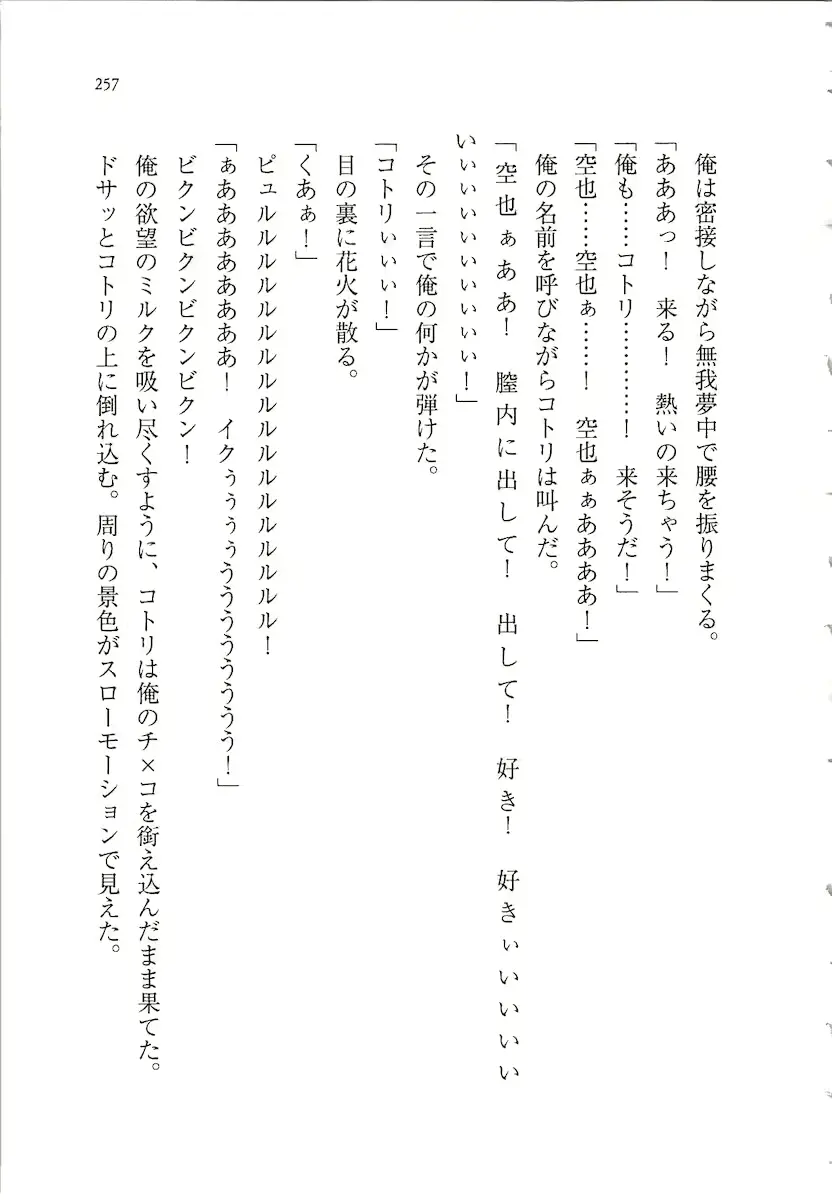 257
俺は密接しながら無我夢中で腰を振りまくる。
「あああっ！　来る！　熱いの来ちゃう！」
「俺も……コトリ…………！　来そうだ！」
「空也……空也ぁ……！　空也ぁぁあああ！」
俺の名前を呼びながらコトリは叫んだ。
「空也ぁああ！　膣内に出して！　出して！　好き！　好きぃいいいい
いぃぃいいいいいぃぃ！」
その一言で俺の何かが弾けた。
「コトリぃぃぃ！」
目の裏に花火が散る。
「くあぁ！」
ピュルルルルルルルルルルルルルルルルルルル！
「ぁあああああああああ！　イクぅぅぅぅうううううううう！」
ビクンビクンビクンビクン！
俺の欲望のミルクを吸い尽くすように、コトリは俺のチ×コを銜え込んだまま果てた。
ドサッとコトリの上に倒れ込む。周りの景色がスローモーションで見えた。